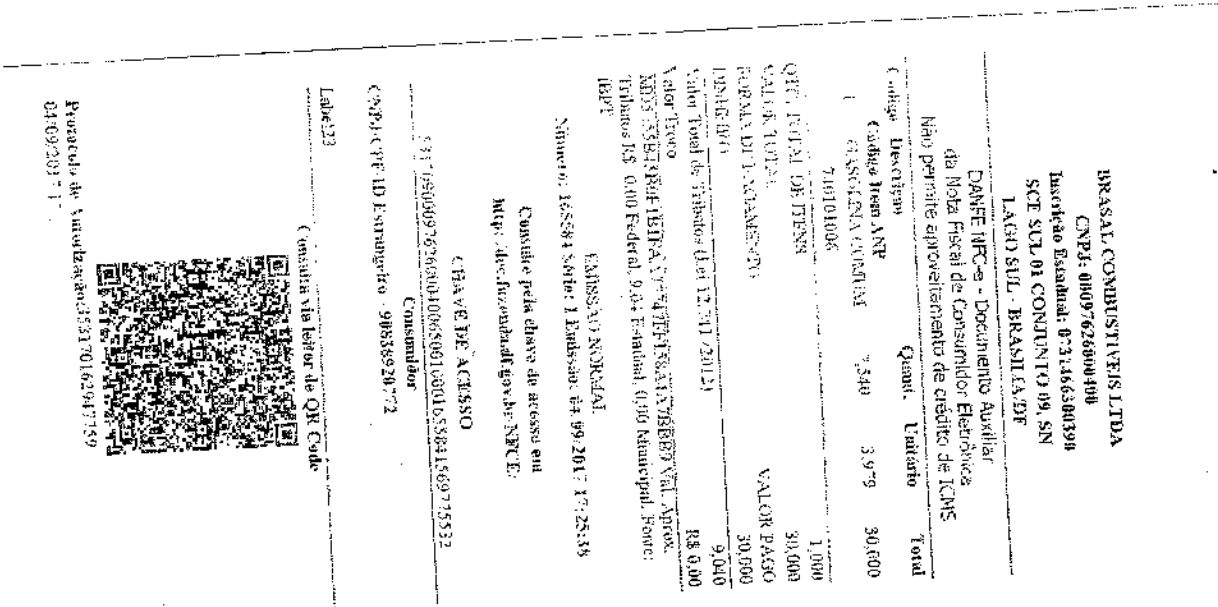 BRASAL COMBUSTIVEIS LTDA
CNPJ: 00097626000400
Inscrição Estadual: 0731466300398
SCE SUL 01 CONJUNTO 09, SN
LAGO SUL - BRASILIA/DF
DANFE NFC-e - Documento Auxiliar
da Nota Fiscal de Consumidor Eletrônica
Não permite aproveitamento de crédito de ICMS
Codigo Descriçao Quant. Unitário Total
Código Item ANP
1 GASOLINA COMUM 7,540 3.979 30,000
740101006
QTD. TOTAL DE ITENS 1,000
VALOR TOTAL 30,000
FORMA DE PAGAMENTO VALOR PAGO
DINHEIRO 30,000
Valor Total de Tributos (Lei 12.741 /2012) 9,040
Valor Troco R$ 0,00
Val. Aprox.
Tributos R$ 0.00 Federal, 9.04 Estadual, 0.00 Municipal. Fonte:
IBPT
EMISSÃO NORMAL
Número: 165584 Série: 1 Emissão: 04/09/2017 17:25:38
Consulte pela chave de acesso em
http://dec.fazenda.df.gov.br/NFCE/
CHAVE DE ACESSO
Consumidor
CNPJ/CPF/ID Estrangeiro - 90836920772
Consulta via leitor de QR Code
Label23
Protocolo de Autorização:353170162947759
04/09/2017